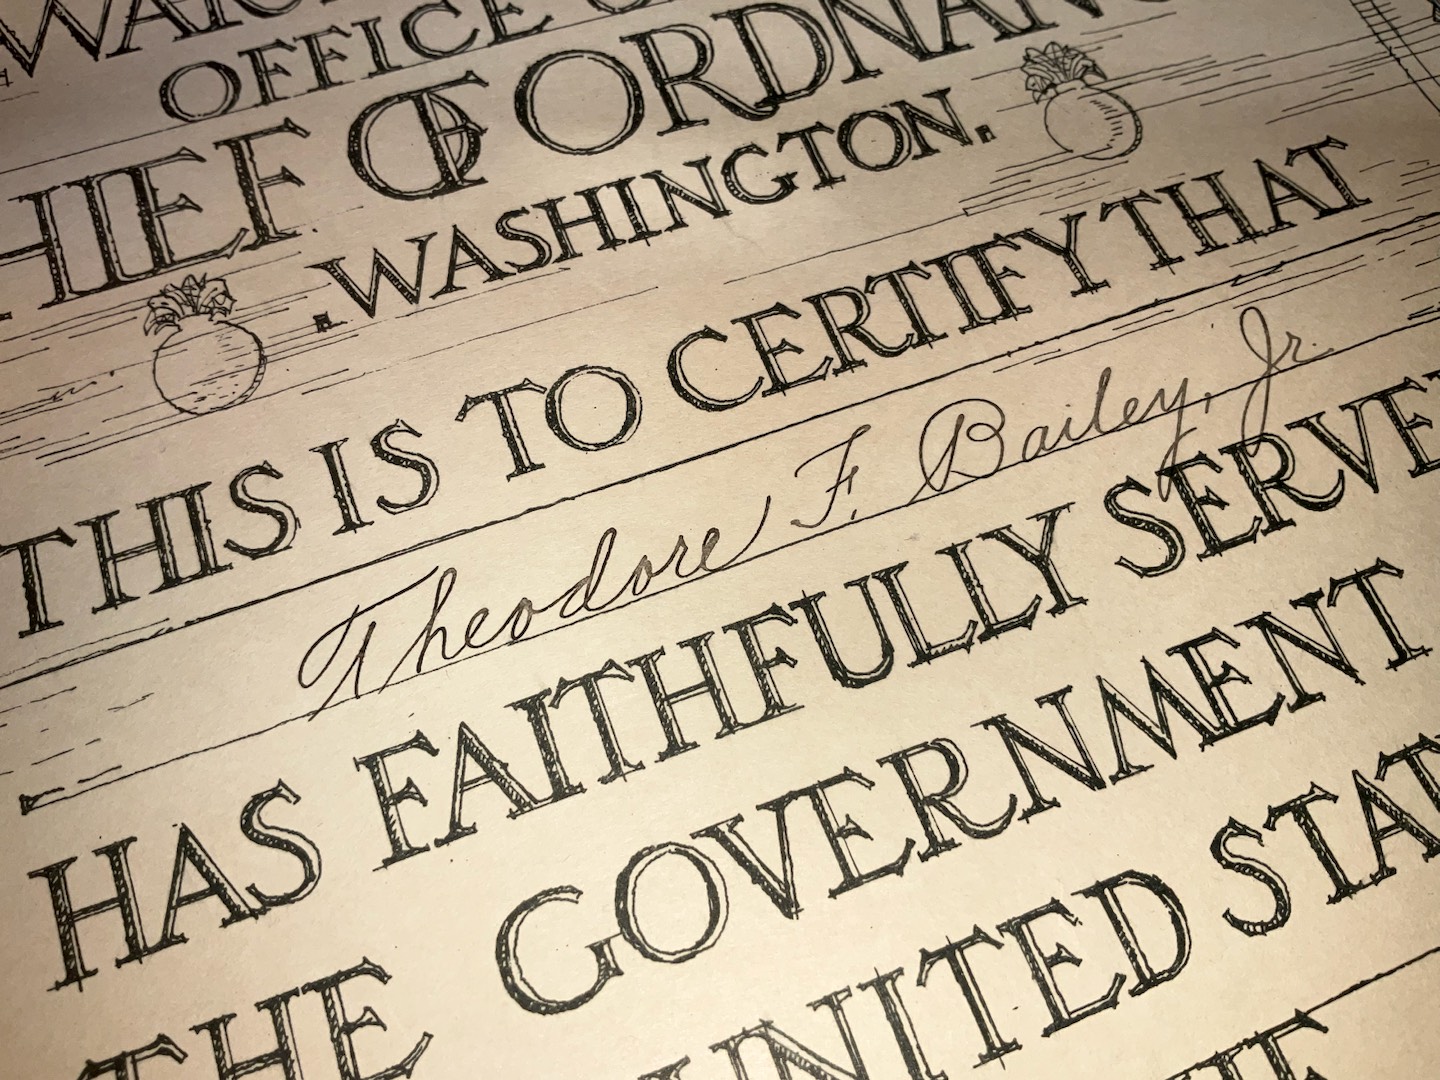 OFFICE
CHIEF OF ORDNANCE
.WASHINGTON.
THIS IS TO CERTIFY THAT
Theodore F. Bailey, Jr.
HAS FAITHFULLY SERVED
THE GOVERNMENT
UNITED STATES
THE